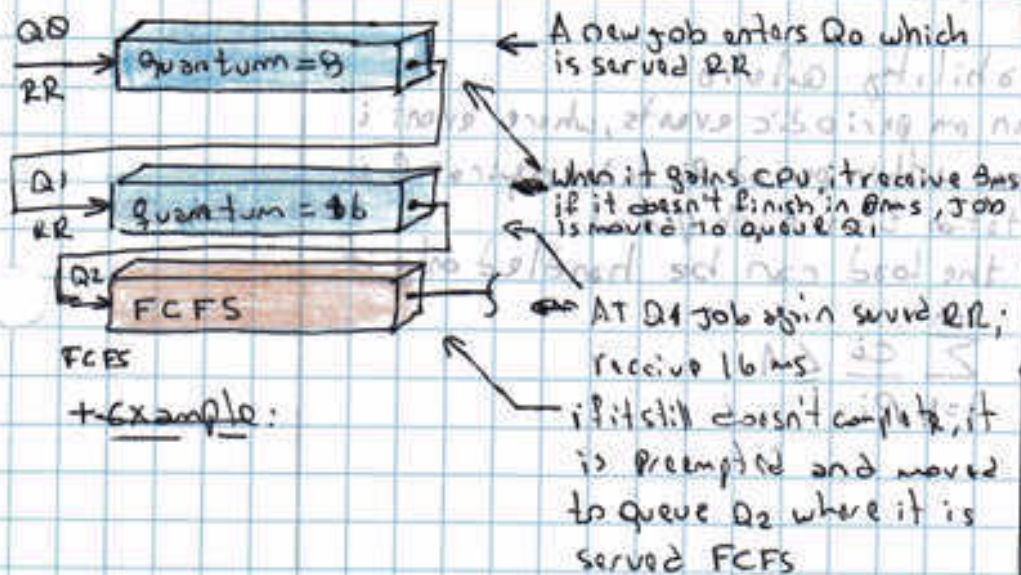 Q0
RR
quantum = 8
Q1
RR
quantum = 16
Q2
FCFS
FCFS
+ Example:
A new job enters Q0 which
is served RR
when it gains CPU, it receive 8ms
if it doesn't finish in 8ms, Job
is moved to queue Q1
AT Q1 job again served RR;
receive 16 ms
if it still doesn't complete, it
is Preempted and moved
to queue Q2 where it is
served FCFS